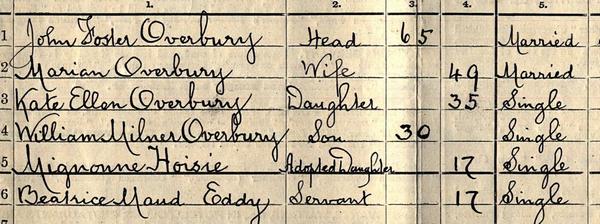 1. 2. 3. 4. 5.
1 John Foster Overbury Head 65 Married
2 Marian Overbury Wife 49 Married
3 Kate Ellen Overbury Daughter 35 Single
4 William Milner Overbury Son 30 Single
5 Mignonne Hoisie Adopted Daughter 17 Single
6 Beatrice Maud Eddy Servant 17 Single
7